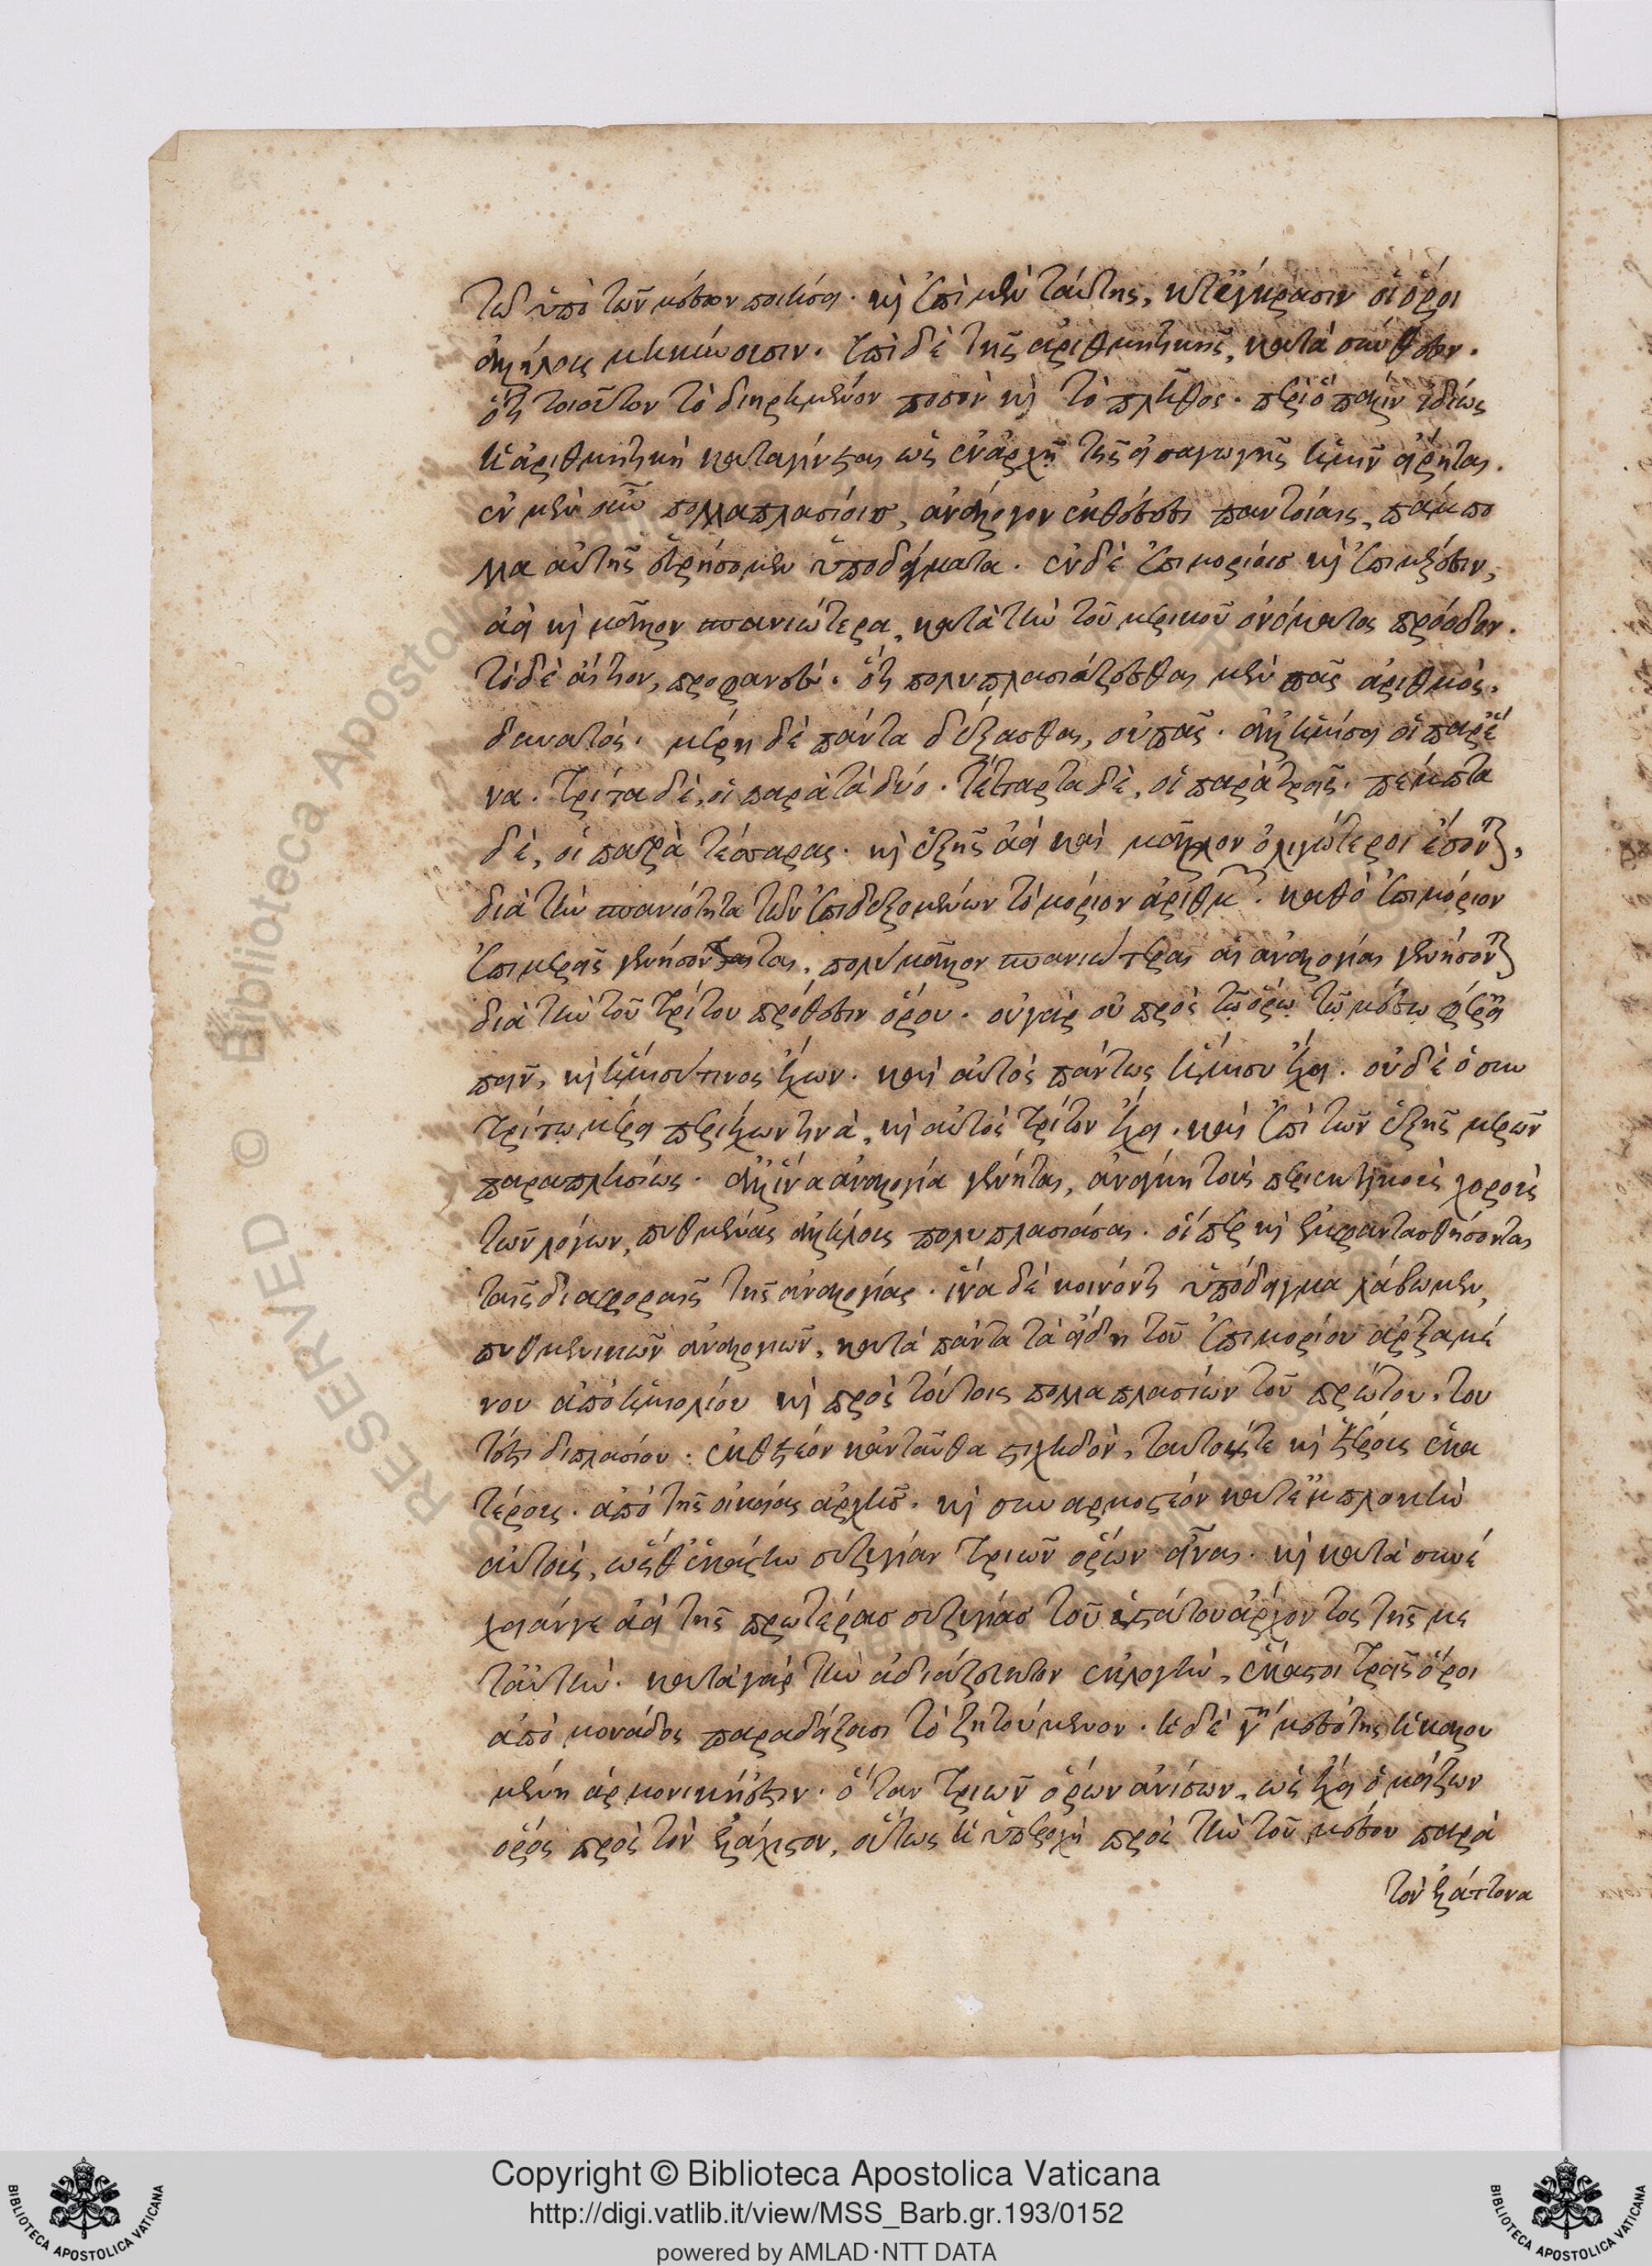 τῶ ὑπὸ τῶν μέσων ποιῆσαι. καὶ ἐπὶ μὲν ταύτης, κατ' ἔγκρασιν οἱ ὅροι
ἀλλήλοις μειγνύουσιν. ἐπὶ δὲ τῆς ἀριθμητικῆς, κατὰ σύνθεσιν.
ὅτι τοιοῦτον τὸ διῃρημένον ποσὸν καὶ τὸ πλῆθος. περὶ ὃ πάλιν ἰδίως
ἡ ἀριθμητικὴ καταγίνεται ὡς ἐν ἀρχῇ τῆς εἰσαγωγῆς ἡμῖν εἴρηται.
ἐν μὲν οὖν πολλαπλασίοις, ἀνάλογον ἐκθέσεσι παντοίαις, πάμπο
λλα αὐτῆς εὑρήσομεν ὑποδείγματα. ἐν δὲ ἐπιμορίοις καὶ ἐπιμερέσιν,
ἀεὶ καὶ μᾶλλον σπανιώτερα, κατὰ τὴν τοῦ μερικοῦ ὀνόματος πρόοδον.
τὸ δὲ αἴτιον, προφανές. ὅτι πολυπλασιάζεσθαι μὲν πᾶς ἀριθμός,
δυνατός. μέρη δὲ πάντα δέξασθαι, οὐ πᾶς. ἀλλ' ἡμίση οἱ παρ' ἕ
να. τρίτα δὲ, οἱ παρὰ τὰ δύο. τέταρτα δὲ, οἱ παρὰ τρεῖς. πέμπτα
δὲ, οἱ παρὰ τέσσαρας. καὶ ἑξῆς ἀεὶ καὶ μᾶλλον ὀλιγώτεροι ἔσονται,
διὰ τὴν σπανιότητα τῶν ἐπιδεξομένων τὸ μόριον ἀριθμ. καθὸ ἐπιμόριον
ἐπιμερεῖς γενήσονται, πολὺ μᾶλλον σπανιώτεραι αἱ ἀναλογίαι γενήσονται
διὰ τὴν τοῦ τρίτου πρόσθεσιν ὅρου. οὐ γὰρ ὁ πρὸς τῷ ὅρῳ τῷ μέσῳ
πᾶν, καὶ ἥμισύ τινος ἔχων. καὶ αὐτὸς πάντως ἥμισυ ἔχει. οὐδὲ ὁ σὺν
τρίτῳ μέρει περιέχων τινὰ, καὶ αὐτὸς τρίτον ἔχει. καὶ ἐπὶ τῶν ἑξῆς μερῶν
παραπλησίως. ἀλλ' ἵνα ἀναλογία γένηται, ἀνάγκη τοὺς περιεκτικοὺς χοροὺς
τῶν λόγων, πυθμένας ἀλλήλοις πολυπλασιάσαι. οἵπερ καὶ ἐμφαντασθήσονται
ταῖς διαφοραῖς τῆς ἀναλογίας. ἵνα δὲ κοινόν τι ὑπόδειγμα λάβωμεν,
πυθμενικῶν ἀναλογιῶν, κατὰ πάντα τὰ εἴδη τοῦ ἐπιμορίου ἀρξαμέ
νου ἀπὸ ἡμιολίου καὶ πρὸς τούτοις πολλαπλασίων τοῦ πρώτου. του
τέστι διπλασίου. ἐκθετέον κἀνταῦθα στιχηδὸν, ταυτούς τε καὶ ἑτέρους ἑκα
τέρους. ἀπὸ τῆς οἰκείας ἀρχῆς. καὶ συναρμοστέον κατ' ἐμπλοκὴν
αὐτοὺς, ὥσθ' ἑκάστην συζυγίαν τριῶν ὅρων εἶναι. καὶ κατὰ συνέ
χειάν γε ἀεὶ τῆς προτέρας συζυγίας τοῦ ἐσχάτου ἄρχοντος τῆς με
τ' αὐτήν. κατὰ γὰρ τὴν ἀδιάζευκτον ἐκλογὴν, ἕκαστοι τρεῖς ὅροι
ἀπὸ μονάδος παραδείξουσι τὸ ζητούμενον. ἡ δὲ γ'η μεσότης ἡ καλου
μένη ἁρμονική ἐστιν. ὅταν τριῶν ὅρων ἀνίσων, ὡς ἔχει ὁ μείζων
ὅρος πρὸς τὸν ἐλάχιστον, οὕτως ἡ ὑπεροχὴ πρὸς τὴν τοῦ μέσου παρὰ
τὸν ἐλάττονα
Copyright © Biblioteca Apostolica Vaticana
http://digi.vatlib.it/view/MSS_Barb.gr.193/0152
powered by AMLAD·NTT DATA